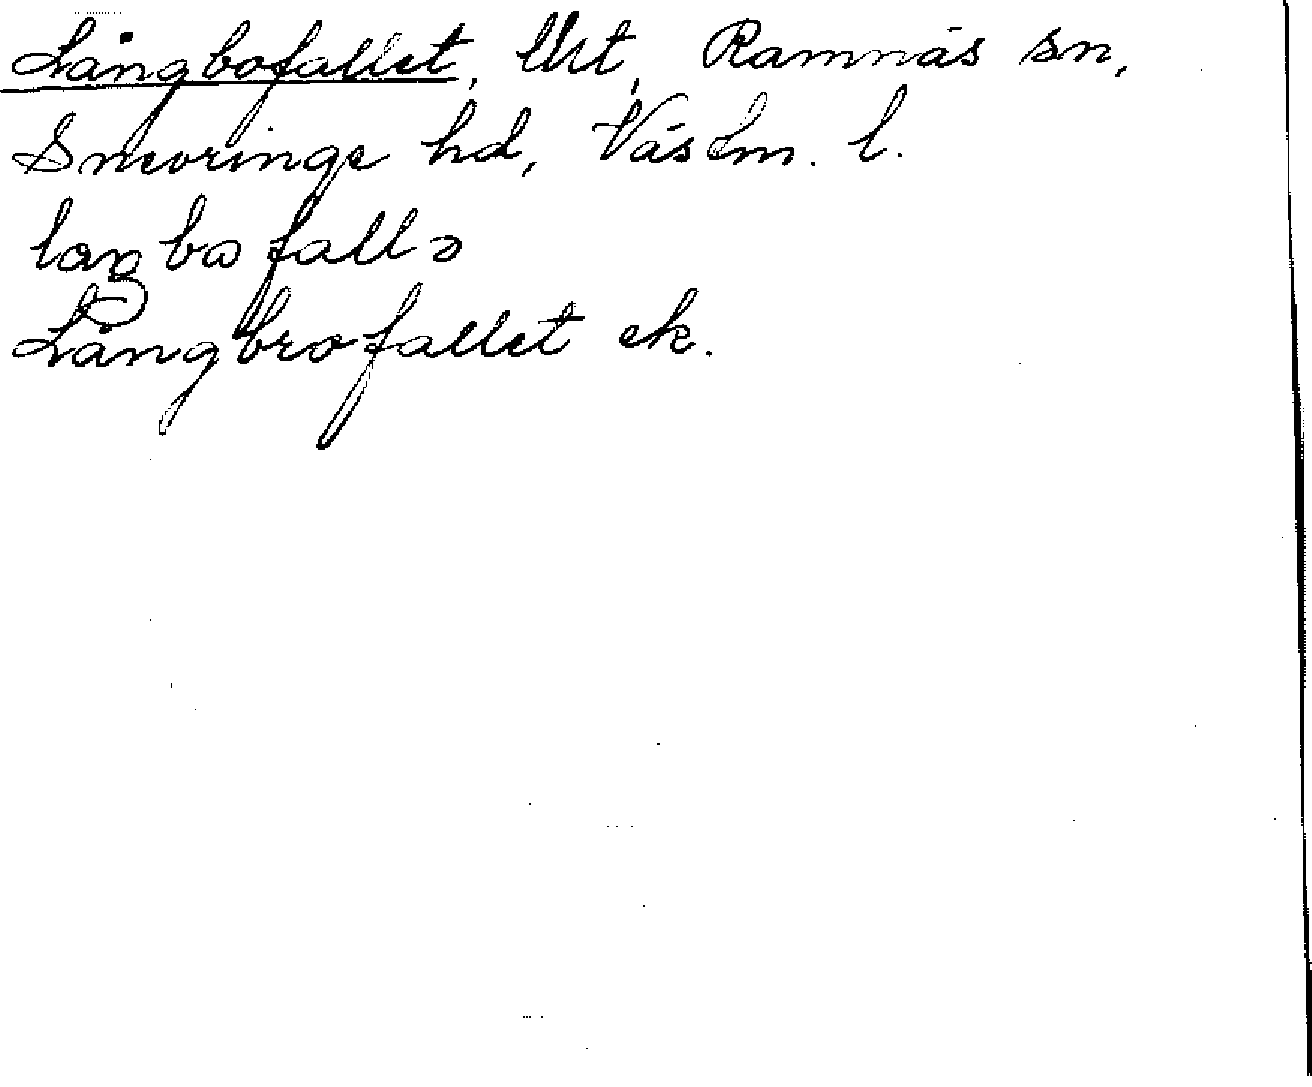 Långbofallet, Urt, Ramnäs sn,
Snevringe hd, Västm. l.
laŋbofallə
Långbrofallet ek.